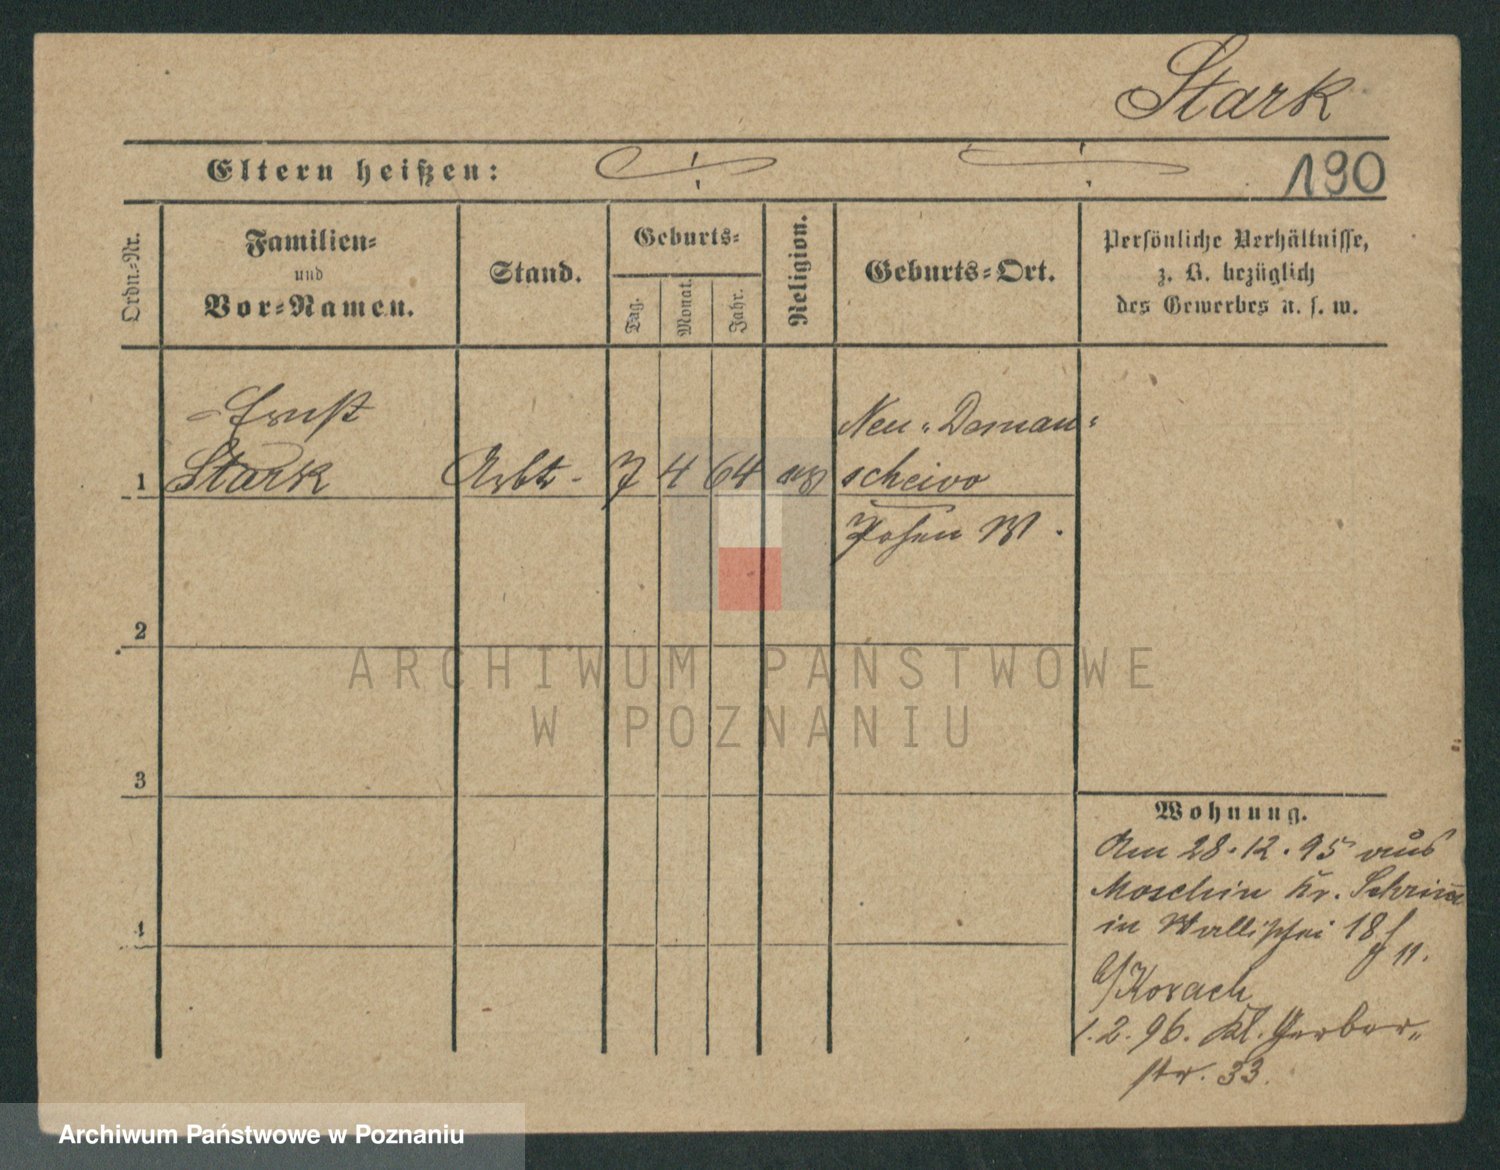 Stark
Eltern heißen:
190
Ordn.-Nr.
Familien-
und
Vor-Namen.
Stand.
Geburts-
Tag.
Monat.
Jahr.
Religion.
Geburts-Ort.
Persönliche Verhältnisse,
z. B. bezüglich
des Gewerbes u. s. w.
Ernst
Stark
1
Arbtr.
7
4
64
Neu-Deman-
scheivo
Posen W.
2
3
4
Wohnung.
Am 28.12.95 aus
Moschin Kr. Schrim̅
in Wallischei 18
11.
b/Korach
1.2.96. Kl. Gerber-
str. 33.
ARCHIWUM PAŃSTWOWE
W POZNANIU
Archiwum Państwowe w Poznaniu